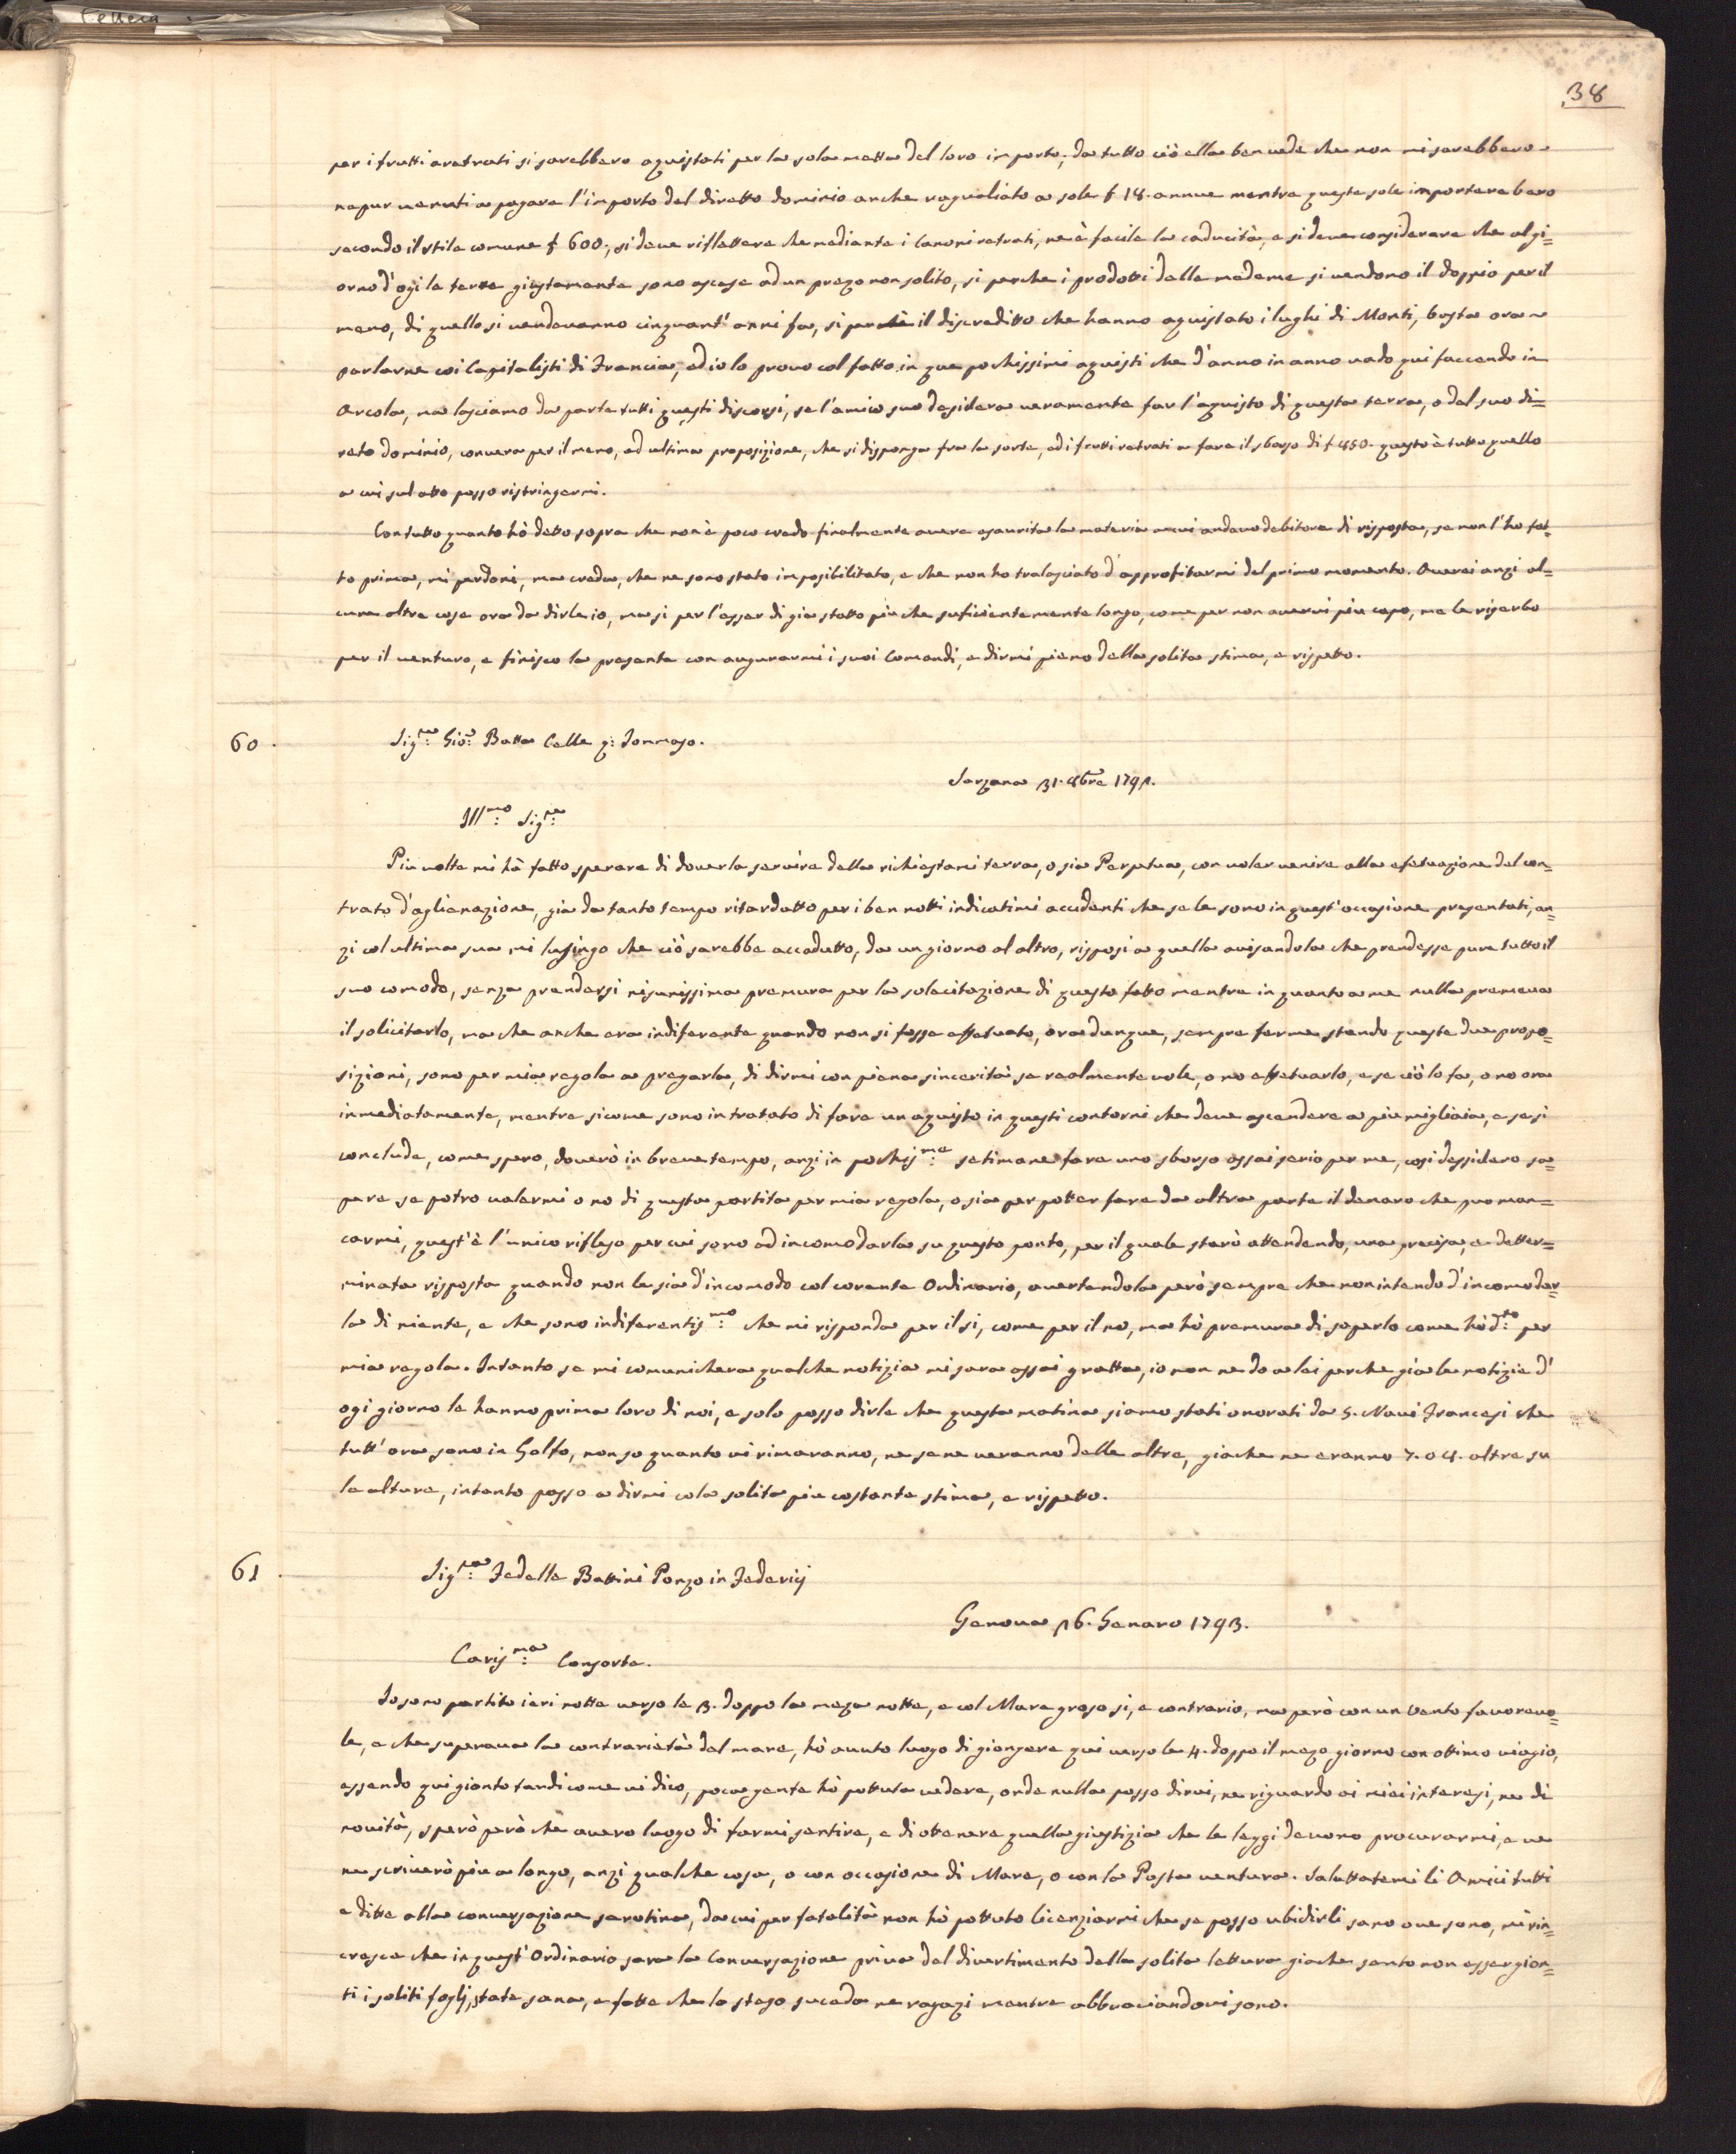 38
per i frutti aretrati si sarebbero aquistati per la sola metta del loro importo, da tutto ciò ella ben vede che non mi sarebbero
nepur venuti a pagare l'importo del diretto dominio anche raguoliato a sole £ 18. annue mentre queste sole importerebero
secondo il stile comune £ 600., si deve riflettere che mediante i Canoni retrati, ne è facile la caducità, e si deve considerare che al gi=
orno d'ogi le terre giustamente sono ascese ad un prezo non solito, si perche i prodotti delle medeme si vendono il doppio per il
meno, di quello si vendevanno cinquant'anni fa, si perchè il discreditto che hanno aquistato i lughi di Monti, basta ora
parlarne coi Capitalisti di Francia, ed io lo provo col fatto in que pochissimi aquisti che d'anno in anno vado qui faccendo in
Arcola, ma lasciamo da parte tutti questi discorsi, se l'amico suo desidera veramente far l'aquisto di questa terra, o del suo di=
reto dominio, convera per il meno, ed ultima proposizione, che si disponga fra la sorte, ed i frutti retrati a fare il sborso di £ 450. questo è tutto quello
a cui sul atto posso ristringermi.
Con tutto quanto hò detto sopra che non è poco credo finalmente avere esaurita la materia a cui andavo debitore di risposta, se non l'ho fat=
to prima, mi perdoni, ma creda, che ne sono stato imposibilitato, e che non ho tralasciato d'approfitarmi del primo momento. Averei anzi al=
cune altre cose ora da dirle io, ma si per l'esser di gia statto più che suficientemente longo, come per non avervi più capo, me le riserbo
per il venturo, e finisco la presente con augurarmi i suoi Comandi, e dirmi pieno della solita stima, e rispetto.
60.
Sig.re Gio: Batta Celle q: Tommaso.
Sarzana 31. 8bre 1792.
Ill.mo Sig.re
Più volte mi hà fatto sperare di doverla servire della richiestami terra, o sia Perpetua, con voler venire alla efetuazione del con=
trato d'aglienazione, già da tanto tempo ritardatto per i ben notti indicatimi accidenti che se le sono in quest'occasione presentati, an=
zi col ultima sua mi lusingo che ciò sarebbe accadutto, da un giorno al altro, risposi a quella avisandola che prendesse pure tutto il
suo comodo, senza prendersi nisunissima premura per la solecitazione di questo fatto mentre in quanto a me nulla premeva
il solicitarlo, ma che anche era indiferente quando non si fosse effetuato, ora dunque, sempre ferme stando queste due propo=
sizioni, sono per mia regola a pregarla, di dirmi con piena sincerità se realmente vole, o no effetuarlo, e se ciò lo fa, o no ora
inmediatamente, mentre sicome sono in tratato di fare un aquisto in questi contorni che deve ascendere a più migliaia, e se si
conclude, come spero, doverò in breve tempo, anzi in pochis.me setimane fare uno sborso assai serio per me, così dessidero sa=
pere se potro valermi o no di questa partita per mia regola, o sia per potter fare da altra parte il denaro che può man=
carmi, quest'è l'unico rifleso per cui sono ad incomodarla su questo ponto, per il quale starò attendendo, una precisa, e detter=
minata risposta quando non le sia d'incomodo col corente Ordinario, avertendola però sempre che non intendo d'incomodar=
la di niente, e che sono indiferentis.mo che mi risponda per il si, come per il no, ma hò premura di saperlo come hò d.to per
mia regola. Intanto se mi comunichera qualche notizia mi sara assai gratta, io non ne do a lei perche già le notizie d'
ogi giorno le hanno prima loro di noi, e solo posso dirle che questa matina siamo stati onorati da 5. Navi Francesi che
tutt'ora sono in Golfo, non so quanto vi rimaranno, ne se ne veranno delle altre, giache ne eranno 7. o 8. altre su
le alture, intanto passo a dirmi cola solita più costante stima, e rispetto.
61.
Sig.ra Fedelle Battini Ponzo in Federicj
Genova 16. Genaro 1793.
Caris.ma Consorte.
Io sono partito ieri notte verso le 3. doppo la meza notte, e col Mare groso si, e contrario, ma però con un Vento favorevo=
le, e che superava la contrarietà del mare, hò avuto luogo di giongere qui verso le 4. doppo il mezo giorno con ottimo viagio,
essendo qui gionto tardi come vi dico, poca gente hò pottuta vedere, onde nulla posso dirvi, ne riguardo ai miei interesi, ne di
novità, sperò però che avero luogo di farmi sentire, e di ottenere quella giustizia che le leggi devono procurarmi, e ve
ne scriverò più a longo, anzi qualche cosa, o con occasione di Mare, o con la Posta ventura. Saluttatemi li Amici tutti
e ditte alla conversazione serotina, da cui per fatalità non hò pottuto licenziarmi che se posso ubidirli sano ove sono, mi rin=
cresce che in quest'Ordinario sara la Conversazione priva del divertimento della solita lettura giache sento non esser gion=
ti i soliti foglj, state sana, e fatte che lo steso suceda ne ragazi mentre abbraciandovi sono.